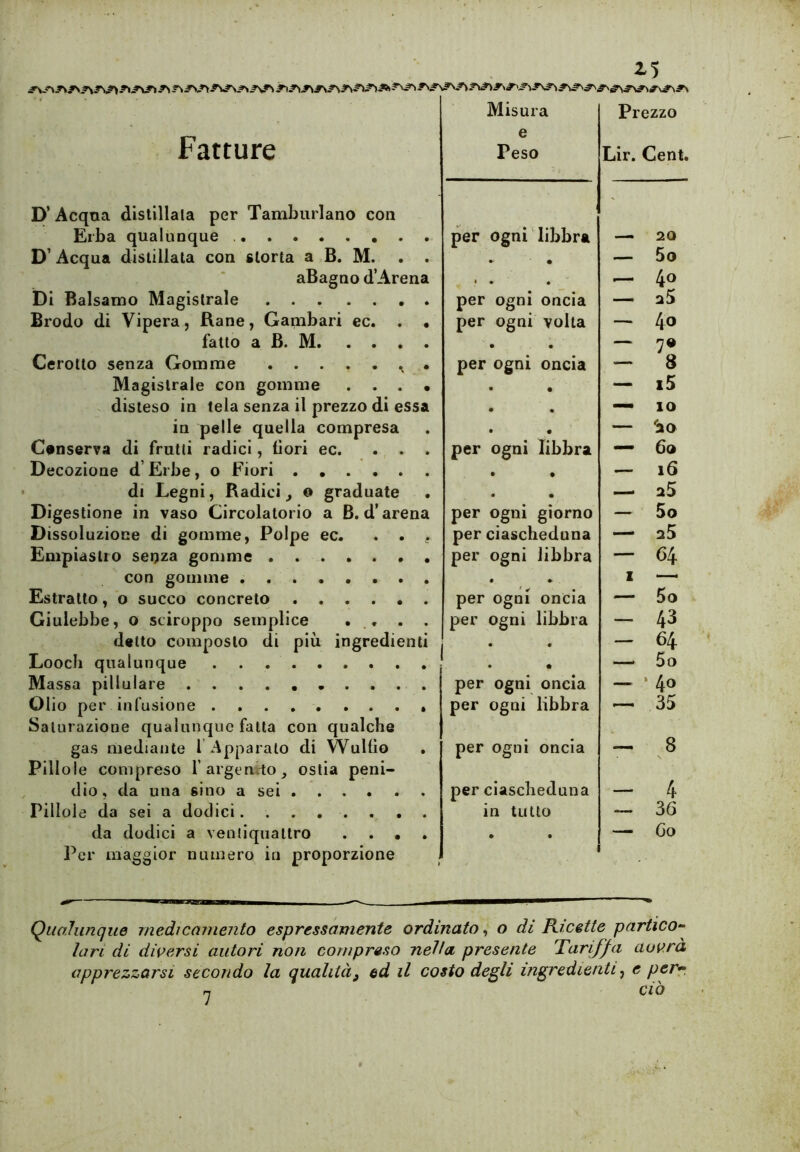 25
Fatture Misura e Peso Prezzo Lir. Cent.
D' Acqua distillata per Tamburlano con
Erba qualunque . . . . . . . . per ogni libbra — 20
D' Acqua distillata con storta a B. M. . . . . — 50
aBagno d'Arena . . . — 40
Di Balsamo Magistrale . . . . . . . per ogni oncia — 25
Brodo di Vipera, Rane, Gambari ec. . . per ogni volta — 40
fatto a B. M. . . . . . . — 70
Cerotto senza Gomme . . . . . . . per ogni oncia — 8
Magistrale con gomme . . . . . . — 15
disteso in tela senza il prezzo di essa . . — 10
in pelle quella compresa . . . — 20
Conserva di frutti radici, fiori ec. . . . per ogni libbra — 60
Decozione d'Erbe, o Fiori . . . . . . . . — 16
di Legni, Radici, o graduate . . . — 25
Digestione in vaso Circolatorio a B. d'arena per ogni giorno — 50
Dissoluzione di gomme, Polpe ec. . . . per ciascheduna — 25
Empiastro senza gomme . . . . . . . per ogni libbra — 64
con gomme . . . . . . . . . . 1 —
Estratto, o succo concreto . . . . . . per ogni oncia — 50
Giulebbe, o sciroppo semplice . . . . per ogni libbra — 43
detto composto di più ingredienti . . — 64
Looch qualunque . . . . . . . . . . . — 50
Massa pillulare . . . . . . . . . . per ogni oncia — 40
Olio per infusione . . . . . . . . . per ogni libbra — 35
Saturazione qualunque fatta con qualche
gas mediante l'Apparato di Wulfio . per ogni oncia — 8
Pillole compreso l'argento, ostia peni-
dio, da una sino a sei . . . . . . per ciascheduna — 4
Pillole da sei a dodici . . . . . . . . in tutto — 36
da dodici a ventiquattro . . . . . . — 60
Per maggior numero in proporzione
Qualunque medicamento espressamente ordinato, o di Ricette partico-
lari di diversi autori non compreso nella presente Tariffa dovrà
apprezzarsi secondo la qualità, ed il costo degli ingredienti, e per-
7 ciò